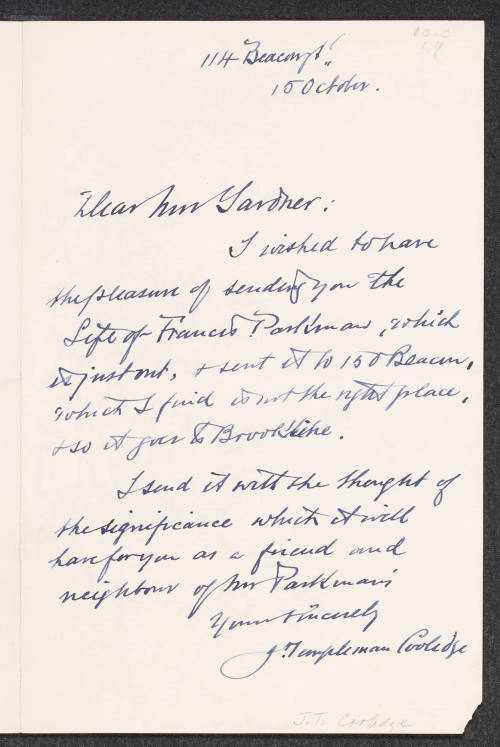 114 Beacon St.
15 October.
Dear Mrs Gardner:
I wished to have
the pleasure of sending you the
Life of Francis Parkman, which
is just out, & sent it to 150 Beacon,
which I find is not the right place,
& so it goes to Brookline.
I send it with the thought of
the significance which it will
have for you as a friend and
neighbour of Mr Parkman's
Yours sincerely
J. Templeman Coolidge
J. T. Coolidge